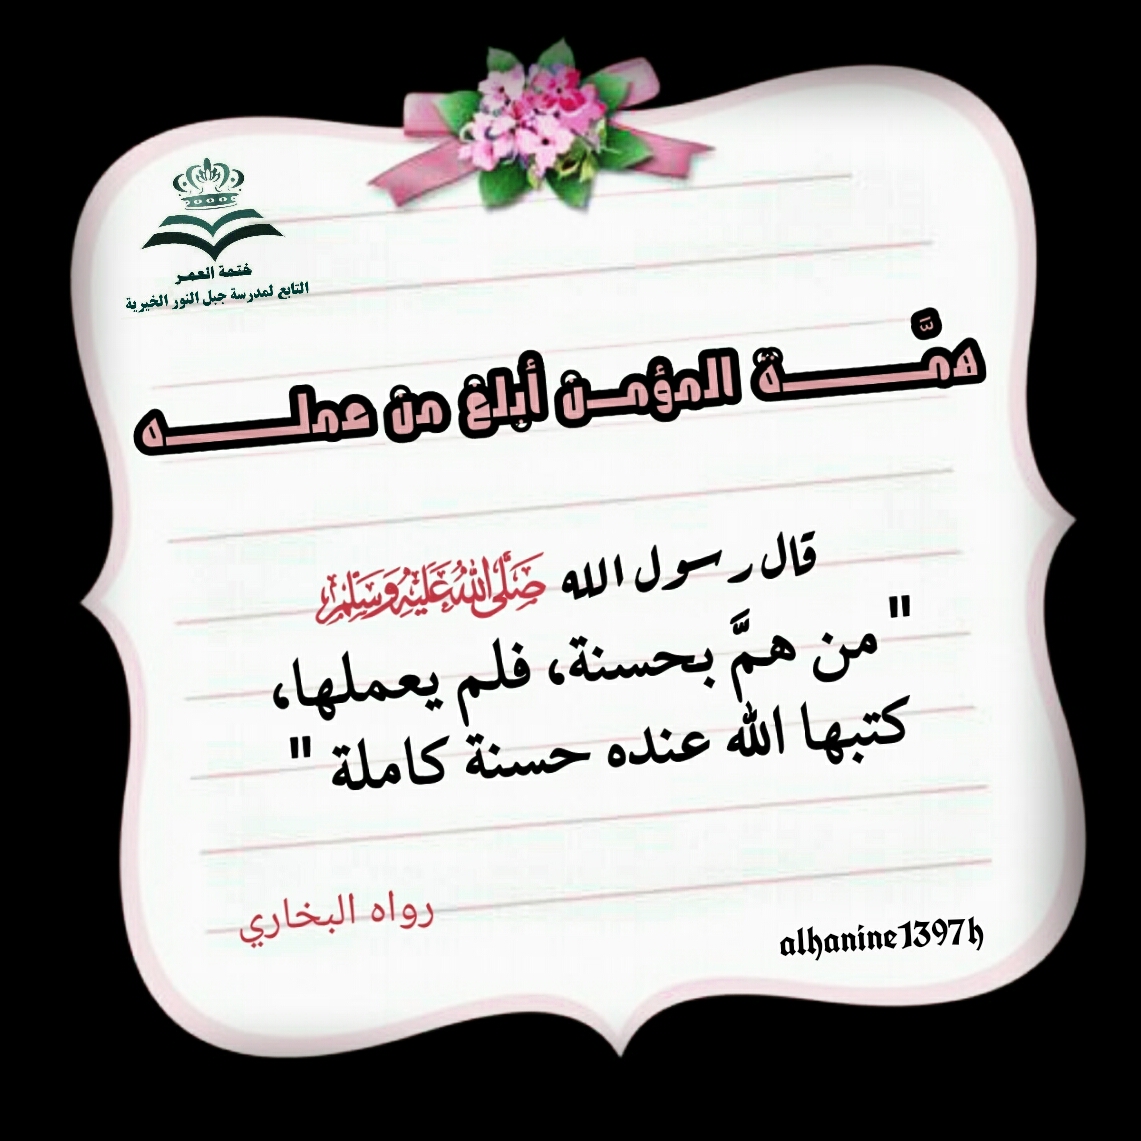 ختمة العمر
التابع لمدرسة جبل النور الخيرية
همَّــــــة المؤمــن أبلغ من عملــــــه
قال رسول الله صَلَّى اللهُ عَلَيْهِ وَسَلَّمَ
" من همَّ بحسنة، فلم يعملها،
كتبها الله عنده حسنة كاملة "
رواه البخاري
alhanine1397h